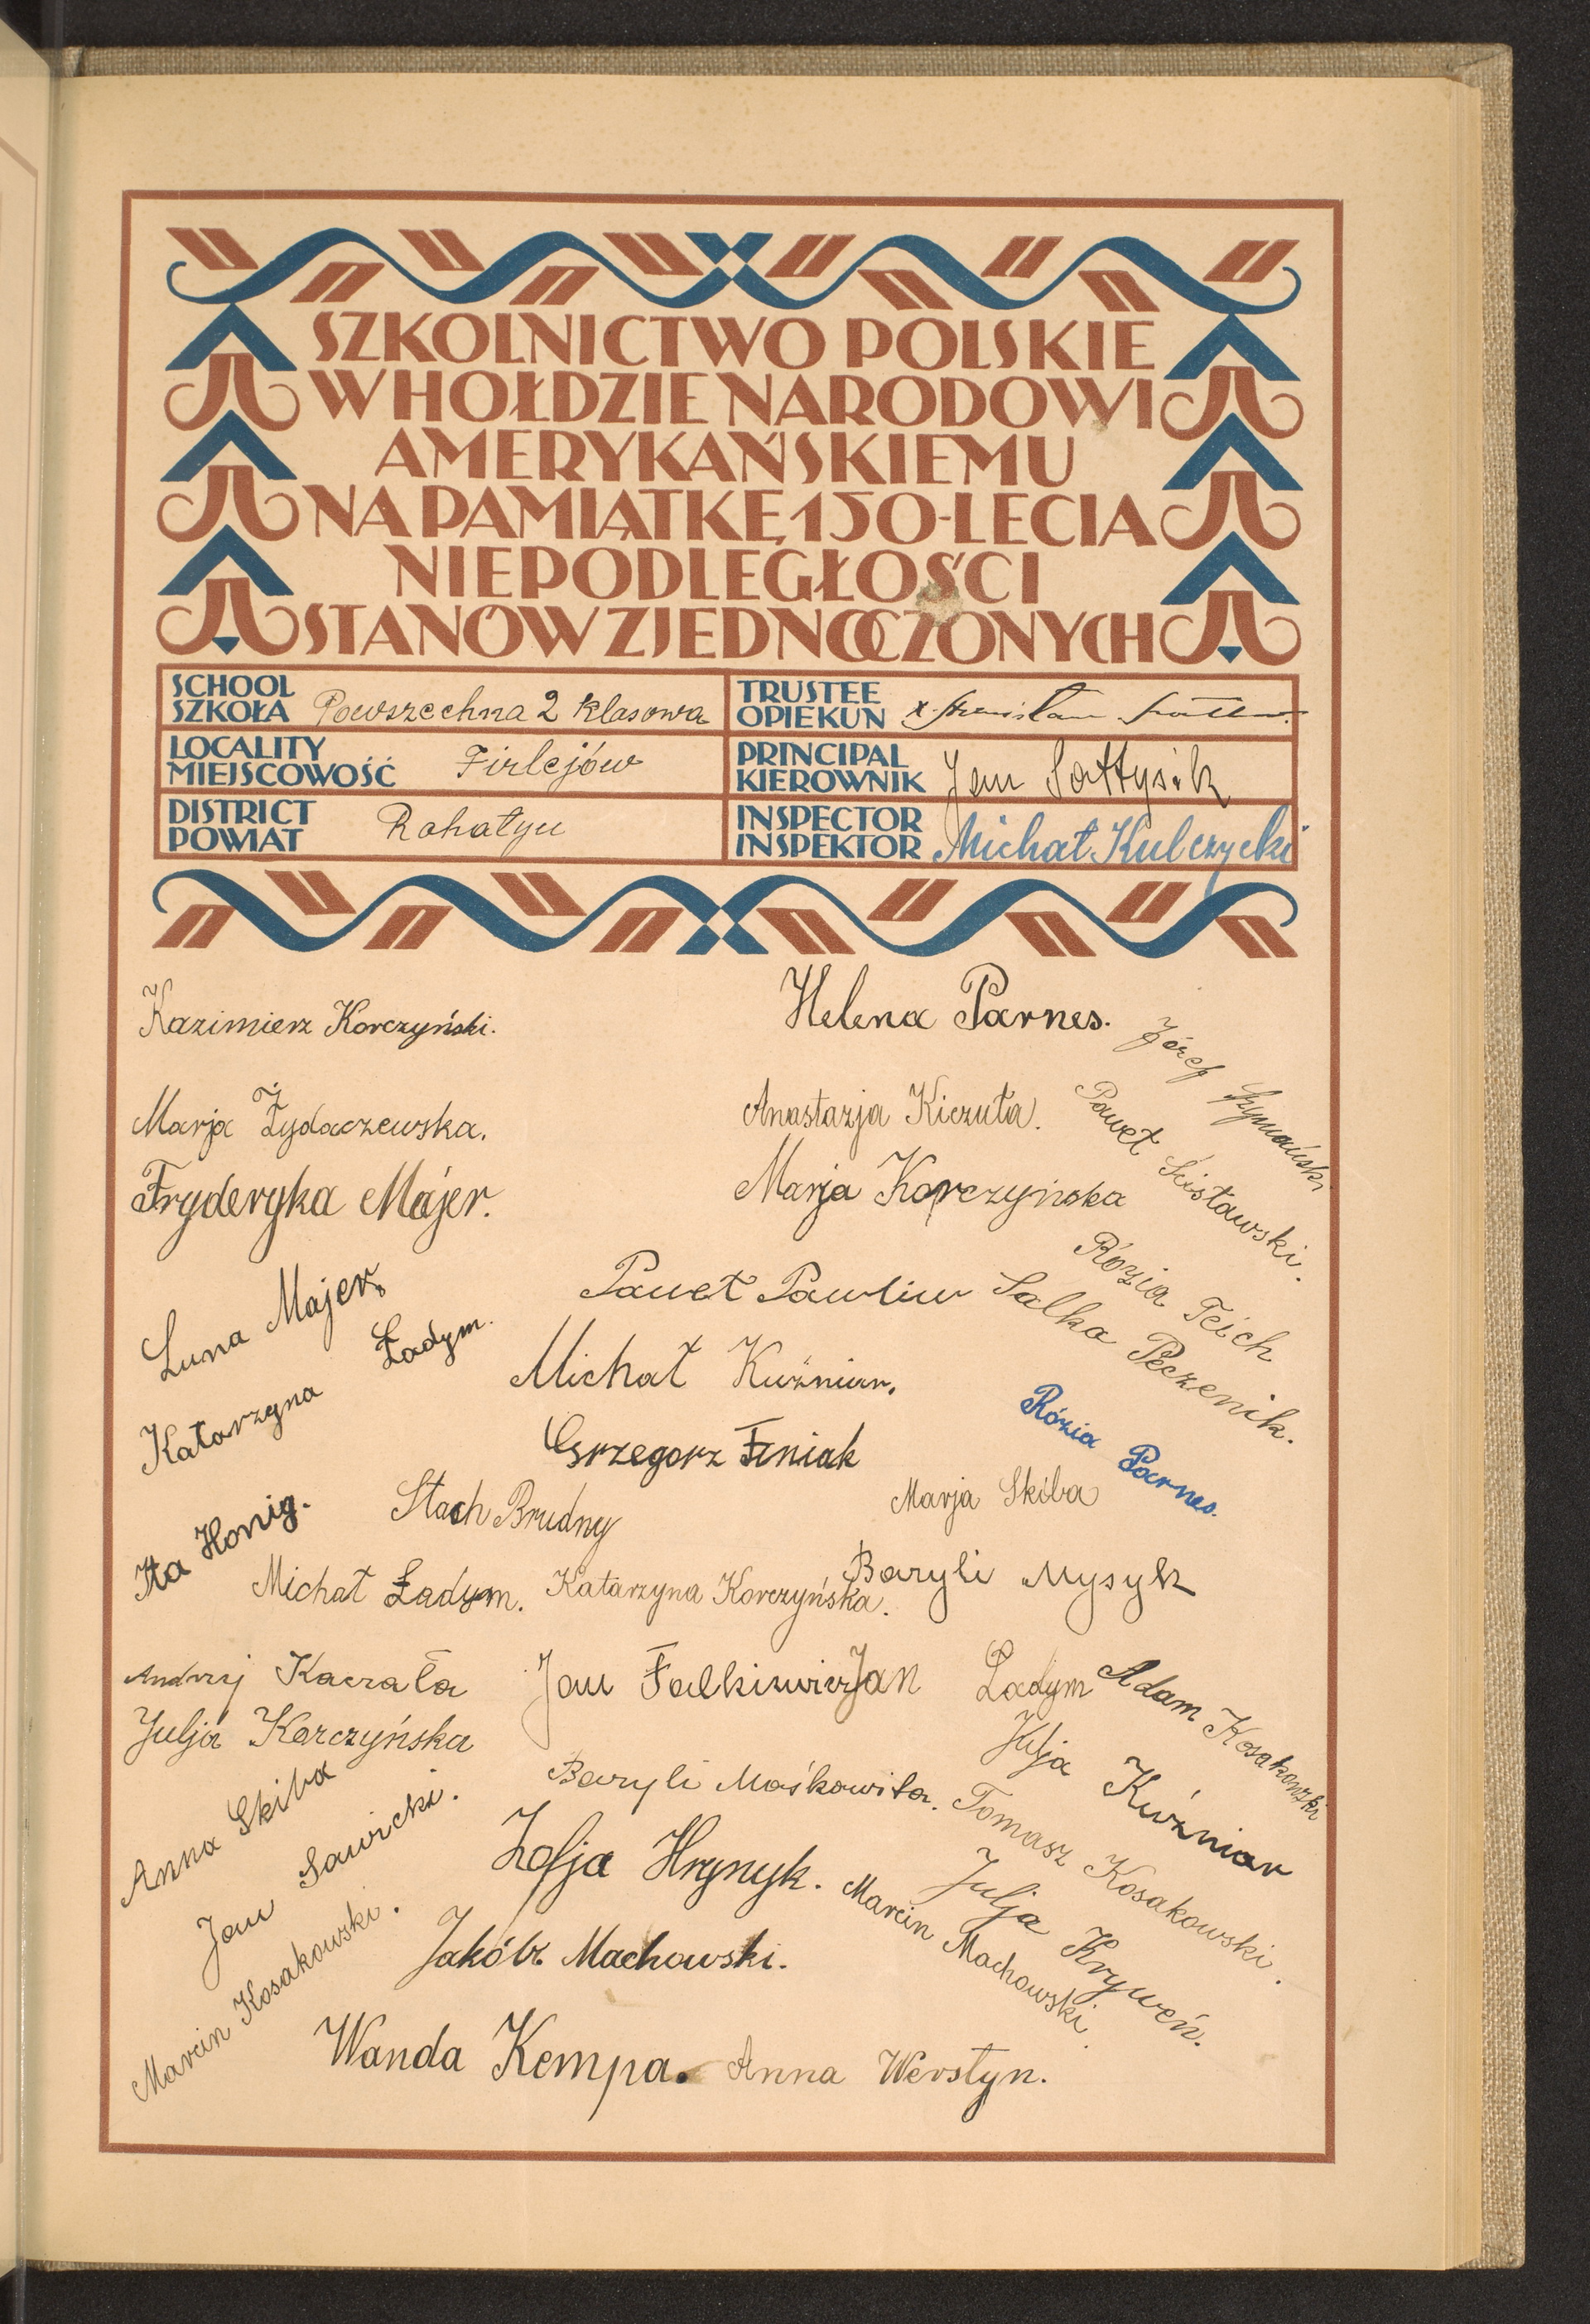 SZKOLNICTWO POLSKIE
W HOŁDZIE NARODOWI
AMERYKAŃSKIEMU
NA PAMIĄTKĘ 150-LECIA
NIEPODLEGŁOŚCI
STANÓW ZJEDNOCZONYCH
SCHOOL
SZKOŁA Powszechna 2 klasowa
TRUSTEE
OPIEKUN X. Stanisław
LOCALITY
MIEJSCOWOŚĆ Firlejów
PRINCIPAL
KIEROWNIK Jan Sołtysik
DISTRICT
POWIAT Rohatyn
INSPECTOR
INSPEKTOR Michał Kulczycki
Kazimierz Korczyński.
Helena Parnes.
Józef Szymański
Marja Żydaczewska.
Anastazja Kiczuła.
Paweł Ścisławski.
Fryderyka Majer.
Marja Korczyńska
Rózia Teich
Luna Majer.
Paweł Pawliw
Salka Peczenik.
Katarzyna Ładym.
Michał Kuźniar.
Rózia Parnes.
Grzegorz Feniak
Ita Honig.
Stach Brudny
Marja Skiba
Michał Ładym.
Katarzyna Korczyńska.
Baryli Mysyk
Andrzej Kaczała
Jan Falkiewicz
Jan Ładym
Adam Kosakowski
Julja Korczyńska
Julja Kuźniar
Anna Skiba
Baryli Maśkowita.
Tomasz Kosakowski.
Jan Sawicki.
Zofja Hrynyk.
Julja Kryweń.
Marcin Kosakowski.
Jakób Machowski.
Marcin Machowski
Wanda Kempa.
Anna Werstyn.